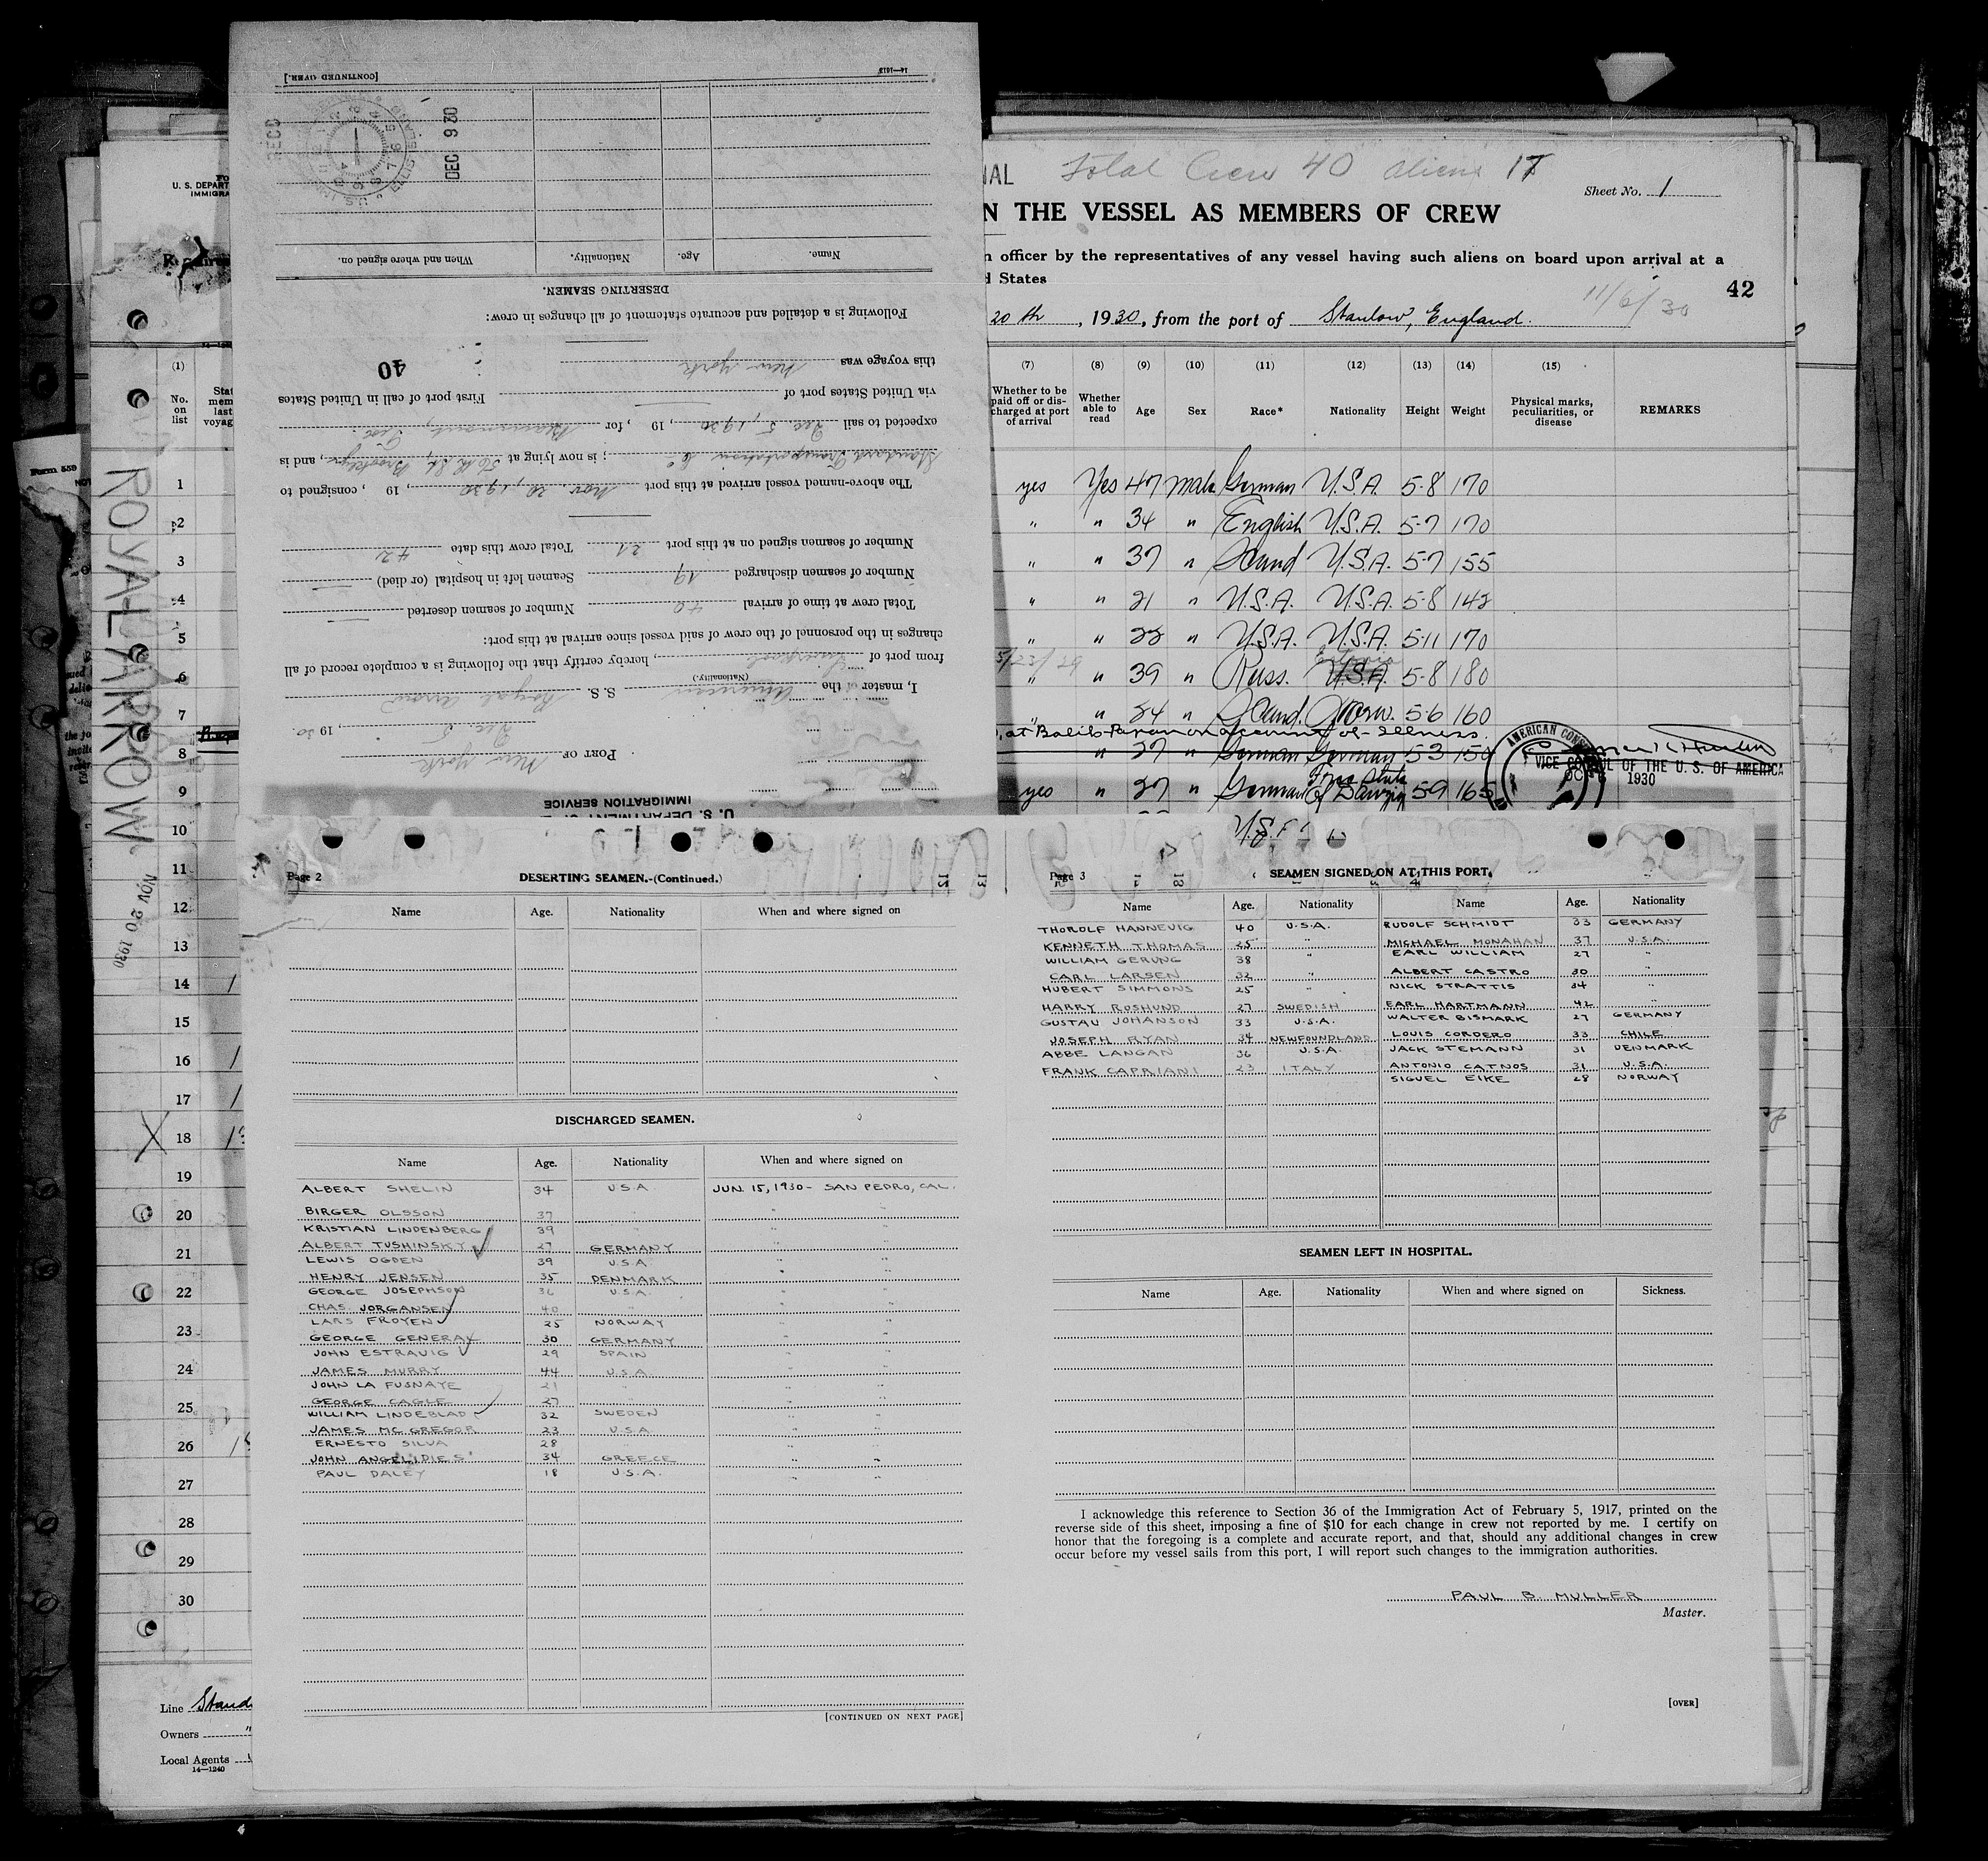 [CONTINUED OVER.]
14—1613
RECD
DEC 9 30
Name.
Age.
Nationality.
When and where signed on.
DESERTING SEAMEN.
Following is a detailed and accurate statement of all changes in crew:
40
this voyage was New York
via United States port of First port of call in United States
expected to sail Dec 5, 1930, 19 , for Beaumont, Tex.
Standard Transportation Co ; is now lying at 56th St, Brooklyn, and is
The above-named vessel arrived at this port Nov. 20, 1930, 19 , consigned to
Number of seamen signed on at this port 21 Total crew this date 42
Number of seamen discharged 19 Seamen left in hospital (or died)
Total crew at time of arrival 40 Number of seamen deserted
changes in the personnel of the crew of said vessel since arrival at this port:
from port of Liverpool, hereby certify that the following is a complete record of all
I, master of the American S. S. Royal Arrow
(Nationality.)
Dec. 5, 1930
PORT OF New York
IMMIGRATION SERVICE
U. S. DEPARTMENT OF
U. S. DEPART
IMMIGRA
Form 559
ROYAL ARROW
NOV 20 1930
(1)
No. on list
1
2
3
4
5
6
7
8
9
10
11
12
13
14
15
16
17
18
19
20
21
22
23
24
25
26
27
28
29
30
Line Stand
Owners "
Local Agents
14—1240
NAL Total Crew 40 aliens 17
Sheet No. 1
N THE VESSEL AS MEMBERS OF CREW
n officer by the representatives of any vessel having such aliens on board upon arrival at a
d States
42
11/6/30
20th, 1930, from the port of Stanlow, England.
(7) (8) (9) (10) (11) (12) (13) (14) (15)
Whether to be paid off or discharged at port of arrival
Whether able to read
Age
Sex
Race*
Nationality
Height
Weight
Physical marks, peculiarities, or disease
REMARKS
yes Yes 47 male German U.S.A. 5-8 170
" " 34 " English U.S.A. 5-7 170
" " 37 " Scand U.S.A. 5-7 155
" " 21 " U.S.A. U.S.A. 5-8 142
" " 22 " U.S.A. U.S.A. 5-11 170
5/23/29
" " 39 " Russ. U.S.A. 5-8 180
" " 24 " Scand. Norw. 5-6 160
at Balik-Papan on account of illness.
" 27 " German German 5-3 150
yes " 27 " German Free State of Danzig 5-9 165
AMERICAN CONS
VICE CONSUL OF THE U. S. OF AMERICA
1930
Page 2
DESERTING SEAMEN.-(Continued.)
Name Age. Nationality When and where signed on
DISCHARGED SEAMEN.
Name Age. Nationality When and where signed on
ALBERT SHELIN 34 U.S.A JUN. 15, 1930 - SAN PEDRO, CAL.
BIRGER OLSSON 37 " " "
KRISTIAN LINDENBERG 39 " " "
ALBERT TUSHINSKY 27 GERMANY " "
LEWIS OGDEN 39 U.S.A " "
HENRY JENSEN 35 DENMARK " "
GEORGE JOSEPHSON 36 U.S.A. " "
CHAS. JORGANSEN 40 " " "
LARS FROYEN 25 NORWAY " "
GEORGE GENERAL 30 GERMANY " "
JOHN ESTRAVIG 29 SPAIN " "
JAMES MURRY 44 U.S.A. " "
JOHN LA FUSNAYE 21 " " "
GEORGE CAGLE 27 " " "
WILLIAM LINDEBLAD 32 SWEDEN " "
JAMES MC GREGOR 23 U.S.A " "
ERNESTO SILVA 28 " " "
JOHN ANGELIDIES 34 GREECE " "
PAUL DALEY 18 U.S.A. " "
[CONTINUED ON NEXT PAGE]
Page 3
SEAMEN SIGNED ON AT THIS PORT.
Name Age. Nationality Name Age. Nationality
THOROLF HANNEVIG 40 U.S.A. RUDOLF SCHMIDT 33 GERMANY
KENNETH THOMAS 25 " MICHAEL MONAHAN 37 U.S.A.
WILLIAM GERUNG 38 " EARL WILLIAM 27 "
CARL LARSEN 32 " ALBERT CASTRO 30 "
HUBERT SIMMONS 25 " NICK STRATTIS 34 "
HARRY ROSHUND 27 SWEDISH EARL HARTMANN 42 "
GUSTAV JOHANSON 33 U.S.A. WALTER BISMARK 27 GERMANY
JOSEPH RYAN 34 NEWFOUNDLAND LOUIS CORDERO 33 CHILE
ABBE LANGAN 36 U.S.A. JACK STEMANN 31 DENMARK
FRANK CAPRIANI 23 ITALY ANTONIO CATNOS 31 U.S.A.
SIGUEL EIKE 28 NORWAY
SEAMEN LEFT IN HOSPITAL.
Name Age. Nationality When and where signed on Sickness.
I acknowledge this reference to Section 36 of the Immigration Act of February 5, 1917, printed on the
reverse side of this sheet, imposing a fine of $10 for each change in crew not reported by me. I certify on
honor that the foregoing is a complete and accurate report, and that, should any additional changes in crew
occur before my vessel sails from this port, I will report such changes to the immigration authorities.
PAUL B. MULLER
Master.
[OVER]